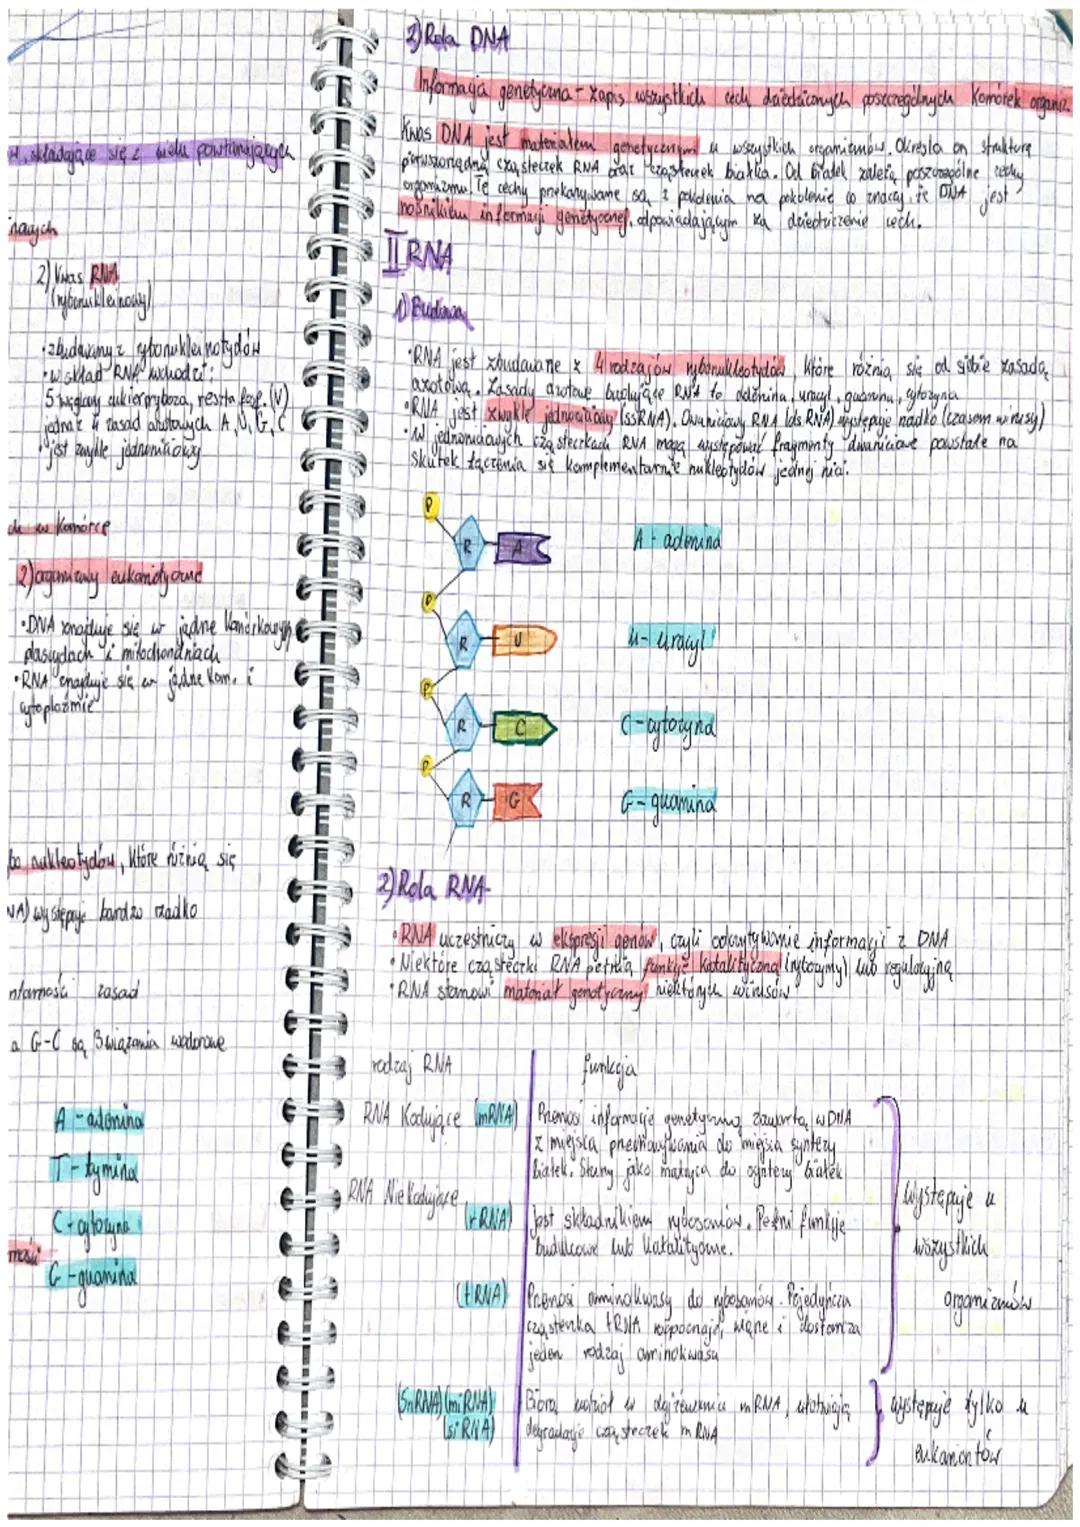 składające się z wielu powtarzających
2) Kwas RNA
(rybonukleinowy)
• zbudowany z rybonukleinotydów
• w skład RNA wchodzi:
5 węglowy cukier ryboza, reszta fosf. (V)
jedna z 4 zasad azotowych A, U, G, C
• jest zwykle jednoniciowy
w komórce
2) organizmy eukariotyczne
• DNA znajduje się w jądrze komórkowym
plastydach i mitochondriach
• RNA znajduje się w jądrze kom. i
cytoplaźmie
nukleotydów, które różnią się
występuje bardzo rzadko
zasad
a G-C są 3 wiązania wodorowe
A - adenina
T - tymina
C - cytozyna
G - guanina
2) Rola DNA
Informacja genetyczna - zapis wszystkich cech dziedzicznych poszczególnych komórek organiz.
Kwas DNA jest materiałem genetycznym u wszystkich organizmów. Określa on strukturę
pierwszorzędną cząsteczek RNA oraz cząsteczek białka. Od białek zależą poszczególne cechy
organizmu. Te cechy przekazywane są z pokolenia na pokolenie co znaczy, że DNA jest
nośnikiem informacji genetycznej, odpowiadającym za dziedziczenie cech.
II RNA
1) Budowa
• RNA jest zbudowane z 4 rodzajów rybonukleotydów, które różnią się od siebie zasadą
azotową. Zasady azotowe budujące RNA to adenina, uracyl, guanina, cytozyna
• RNA jest zwykle jednoniciowy (ssRNA). Dwuniciowy RNA (dsRNA) występuje rzadko (czasem wirusy)
• W jednoniciowych cząsteczkach RNA mogą występować fragmenty dwuniciowe powstałe na
skutek łączenia się komplementarnie nukleotydów jednej nici.
P
R A A - adenina
P
R U U - uracyl
P
R C C - cytozyna
P
R G G - guanina
2) Rola RNA
• RNA uczestniczy w ekspresji genów, czyli odczytywanie informacji z DNA
• Niektóre cząsteczki RNA pełnią funkcję katalityczną (rybozymy) lub regulacyjną
• RNA stanowi materiał genetyczny niektórych wirusów
rodzaj RNA funkcja
RNA Kodujące (mRNA) Przenosi informację genetyczną zawartą w DNA
z miejsca przechowywania do miejsca syntezy
białek. Służy jako matryca do syntezy białek
RNA Nie Kodujące
(rRNA) Jest składnikiem rybosomów. Pełni funkcje
budulcowe lub katalityczne.
(tRNA) Przenosi aminokwasy do rybosomów. Pojedyńcza
cząsteczka tRNA rozpoznaje, wiąże i dostarcza
jeden rodzaj aminokwasu
występuje u
wszystkich
organizmów
(SnRNA) (miRNA)
(siRNA)
Biorą udział w dojrzewaniu mRNA, ułatwiają
degradację cząsteczek mRNA
występuje tylko u
eukariontów